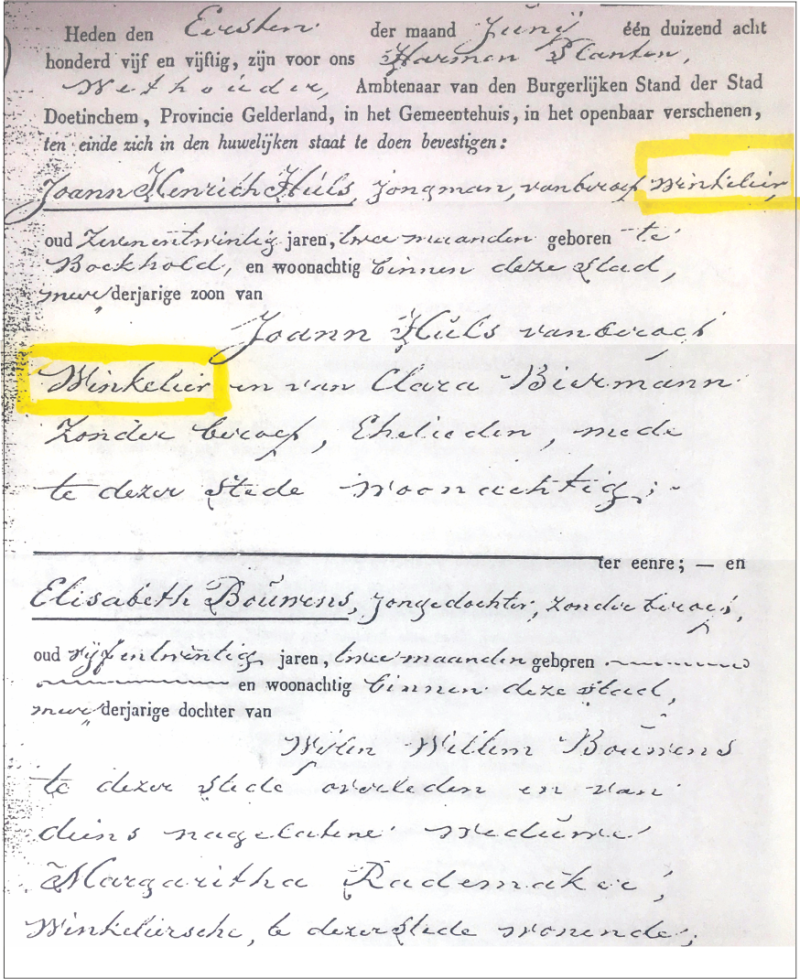 Heden den Eersten der maand Junij één duizend acht
honderd vijf en vijftig, zijn voor ons Harmen Planten,
Wethouder, Ambtenaar van den Burgerlijken Stand der Stad
Doetinchem, Provincie Gelderland, in het Gemeentehuis, in het openbaar verschenen,
ten einde zich in den huwelijken staat te doen bevestigen:
Joann Henrich Hüls, jongman, van beroep Winkelier,
oud Zevenentwintig jaren, twee maanden geboren te
Bockhold, en woonachtig binnen deze stad,
meerderjarige zoon van
Joann Hüls van beroep
Winkelier en van Clara Biermann
Zonder beroep, Ehelieden, mede
te dezer stede woonachtig;
ter eenre; — en
Elisabeth Bouwens, jongedochter, zonder beroep,
oud vijfentwintig jaren, twee maanden geboren
en woonachtig binnen deze stad,
meerderjarige dochter van
Wijlen Willem Bouwens
te dezer stede overleden en van
diens nagelatene weduwe
Margaritha Rademaker,
Winkeliersche, te dezer stede wonende;